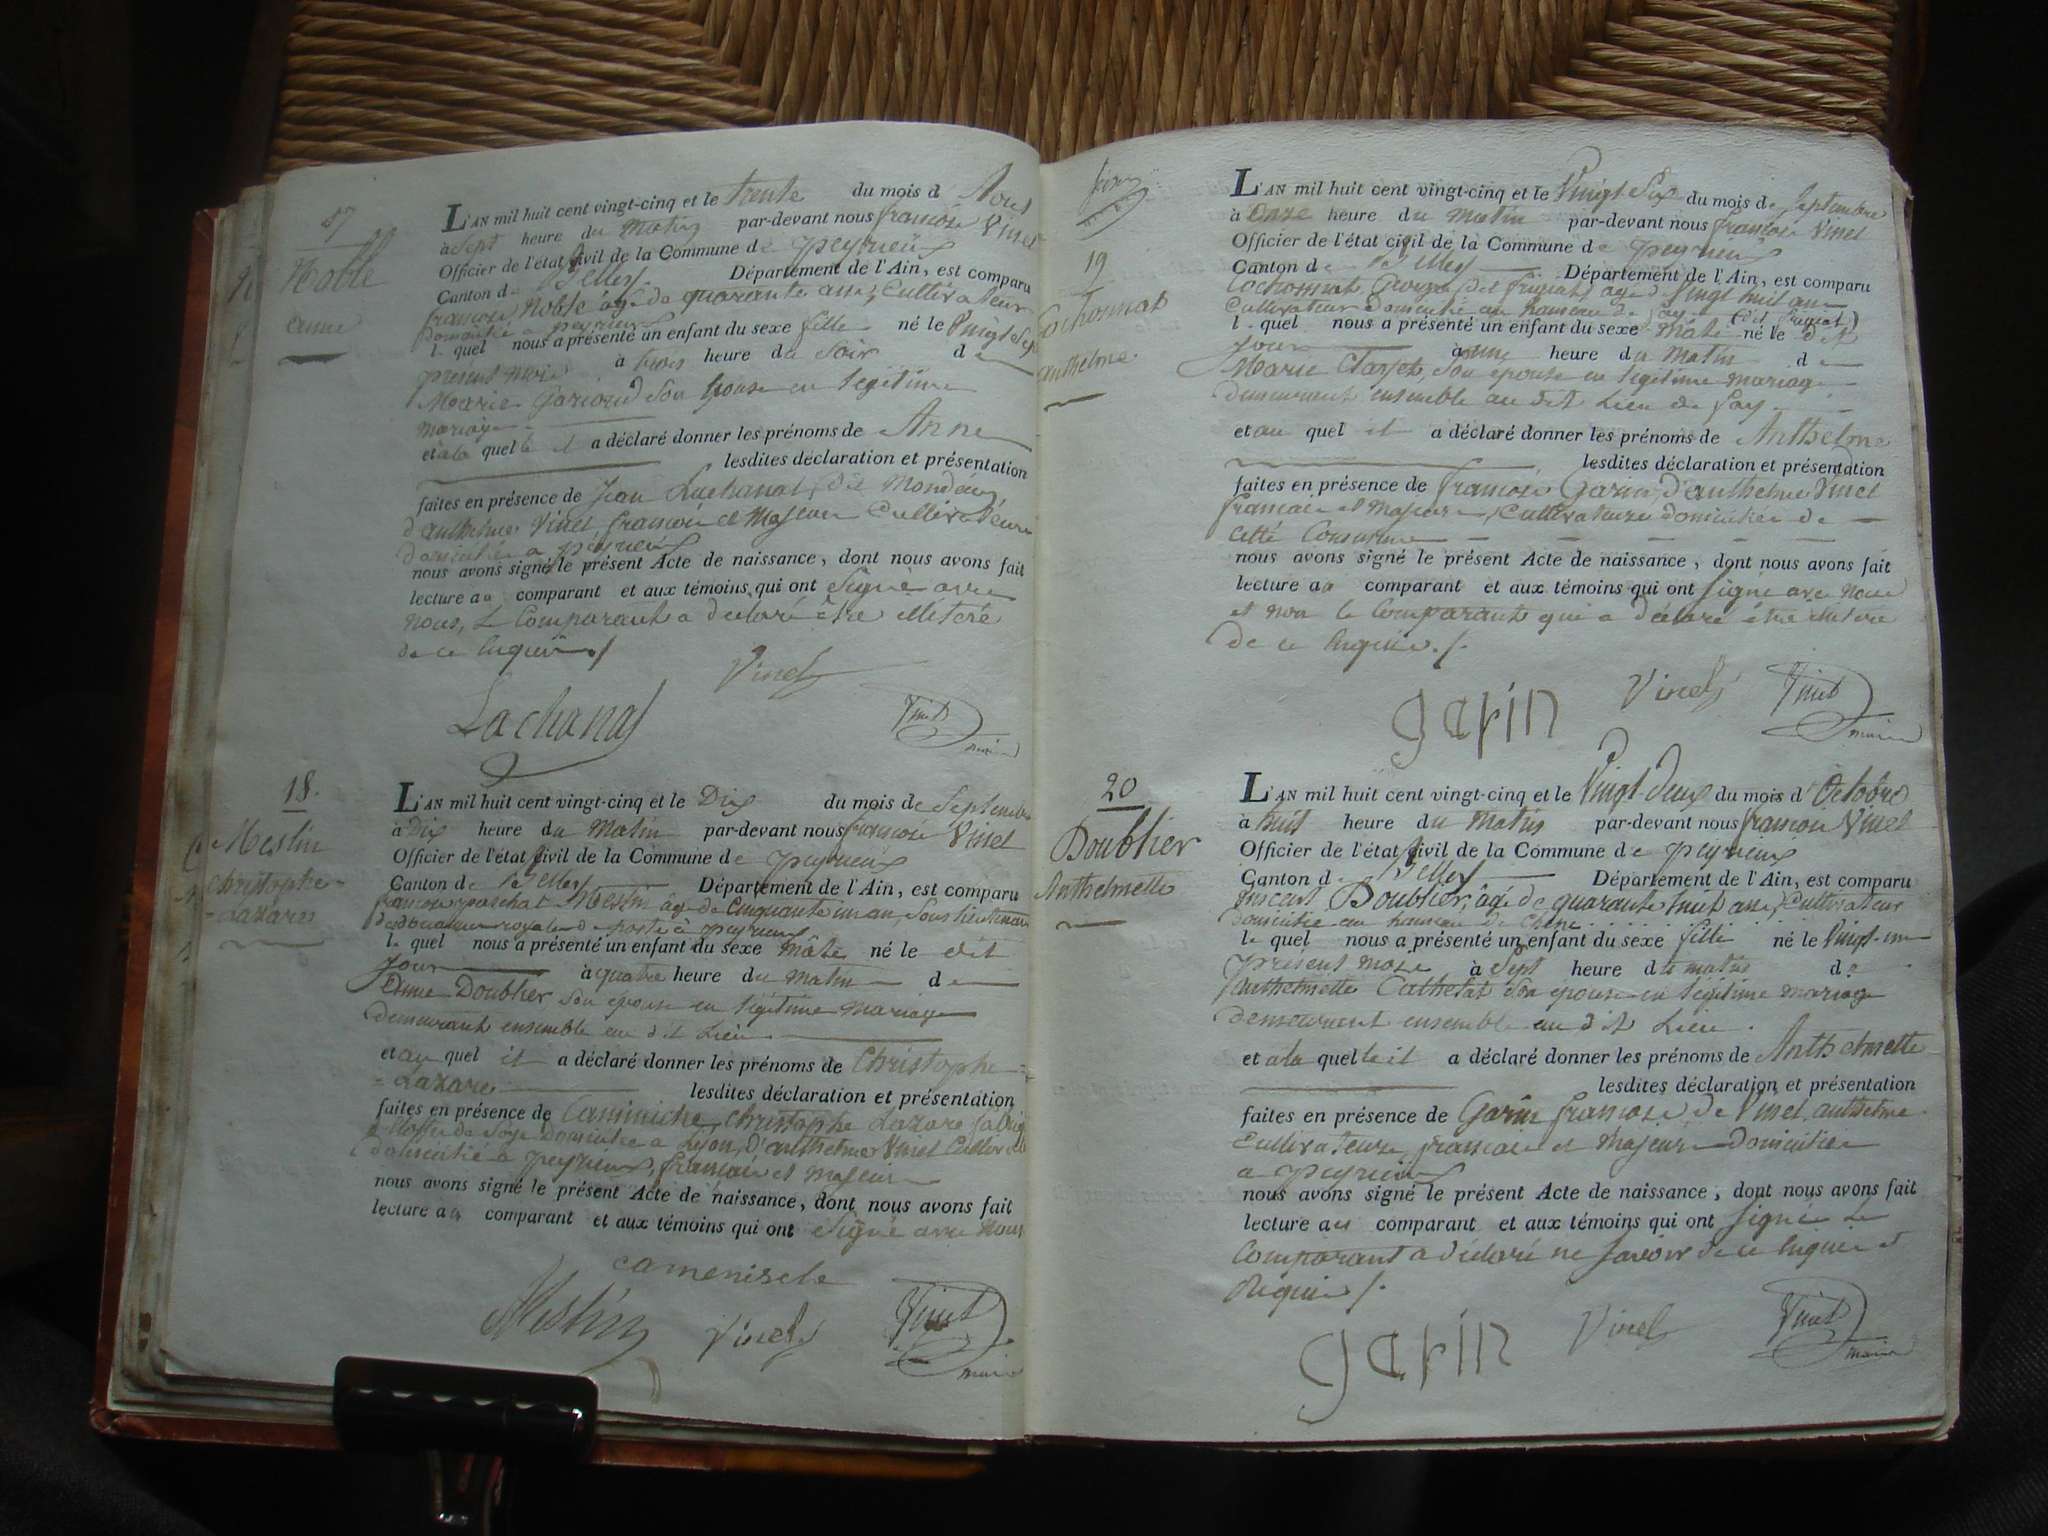 17
Noble
anne
L'AN mil huit cent vingt-cinq et le trente du mois d'Aout
à Sept heure du Matin par-devant nous françois Vinet
Officier de l'état civil de la Commune de peyrieux
Canton de Belley Département de l'Ain, est comparu
françois Noble âgé de quarante ans, Cultivateur
Domicilié a peyrieux
lequel nous a présenté un enfant du sexe fille né le Vingt Sept
présent mois à trois heure du Soir de
Marie Gariod Son épouse en légitime
mariage
et à la quelle il a déclaré donner les prénoms de Anne
lesdites déclaration et présentation
faites en présence de Jean Lachanal, dit
d'anthelme Vinet françois et Majeur Cultivateurs
Domiciliés a peyrieux
nous avons signé le présent Acte de naissance, dont nous avons fait
lecture au comparant et aux témoins qui ont Signé avec
nous, le Comparant a déclaré être illiteré
de ce enquis ./
Vinet
Lachanal
Vinet
maire
18.
Mestin
christophe-
-Lazare
L'AN mil huit cent vingt-cinq et le Dix du mois de Septembre
à Dix heure du Matin par-devant nous françois Vinet
Officier de l'état civil de la Commune de peyrieux
Canton de Belley Département de l'Ain, est comparu
Mestin âgé de Cinquante un an, Sous lieutenant
royales de poste à peyrieux
lequel nous a présenté un enfant du sexe Mâle né le dit
jour à quatre heure du matin de
Anne Doublier Son épouse en légitime Mariage
demeurant ensemble au dit Lieu
et au quel il a déclaré donner les prénoms de Christophe-
-Lazare lesdites déclaration et présentation
faites en présence de Caminiche, Christophe Lazare
de Soye Domicilié a Lyon, D'anthelme Vinet Cultivateur
domicilié a peyrieux, françois et majeur
nous avons signé le présent Acte de naissance, dont nous avons fait
lecture au comparant et aux témoins qui ont Signé avec nous
camenisch
Mestin
Vinet
Vinet
maire
19
Cochonnat
anthelme
L'AN mil huit cent vingt-cinq et le Vingt Six du mois de Septembre
à Onze heure du Matin par-devant nous françois Vinet
Officier de l'état civil de la Commune de peyrieux
Canton de Belley Département de l'Ain, est comparu
Cochonnat âgé d Vingt huit ans
Cultivateur Domicilié au hameau de
lequel nous a présenté un enfant du sexe Mâle né le dit
jour à une heure du Matin de
Marie Son épouse en légitime mariage
demeurant ensemble au dit Lieu de
et au quel il a déclaré donner les prénoms de Anthelme
lesdites déclaration et présentation
faites en présence de françois Garin, d'anthelme Vinet
françois et Majeurs, Cultivateurs domiciliés de
cette Commune
nous avons signé le présent Acte de naissance, dont nous avons fait
lecture au comparant et aux témoins qui ont Signé avec nous
et non le Comparant qui a déclaré être illiteré
de ce enquis ./.
garin
Vinet
Vinet
maire
20
Doublier
Anthelmette
L'AN mil huit cent vingt-cinq et le Vingt-deux du mois d'Octobre
à huit heure du Matin par-devant nous françois Vinet
Officier de l'état civil de la Commune de peyrieux
Canton de Belley Département de l'Ain, est comparu
Doublier, âgé de quarante huit ans, Cultivateur
domicilié au hameau de
lequel nous a présenté un enfant du sexe fille né le Vingt-un
présent mois à Sept heure du matin de
anthelmette Cathelat Son épouse en légitime mariage
demeurant ensemble au dit Lieu.
et à la quelle il a déclaré donner les prénoms de Anthelmette
lesdites déclaration et présentation
faites en présence de Garin françois, de Vinet anthelme
Cultivateurs, françois et Majeurs Domiciliés
a peyrieux
nous avons signé le présent Acte de naissance, dont nous avons fait
lecture au comparant et aux témoins qui ont Signé Le
Comparant a déclaré ne Savoir de ce enquis et
Requis ./.
garin
Vinet
Vinet
maire